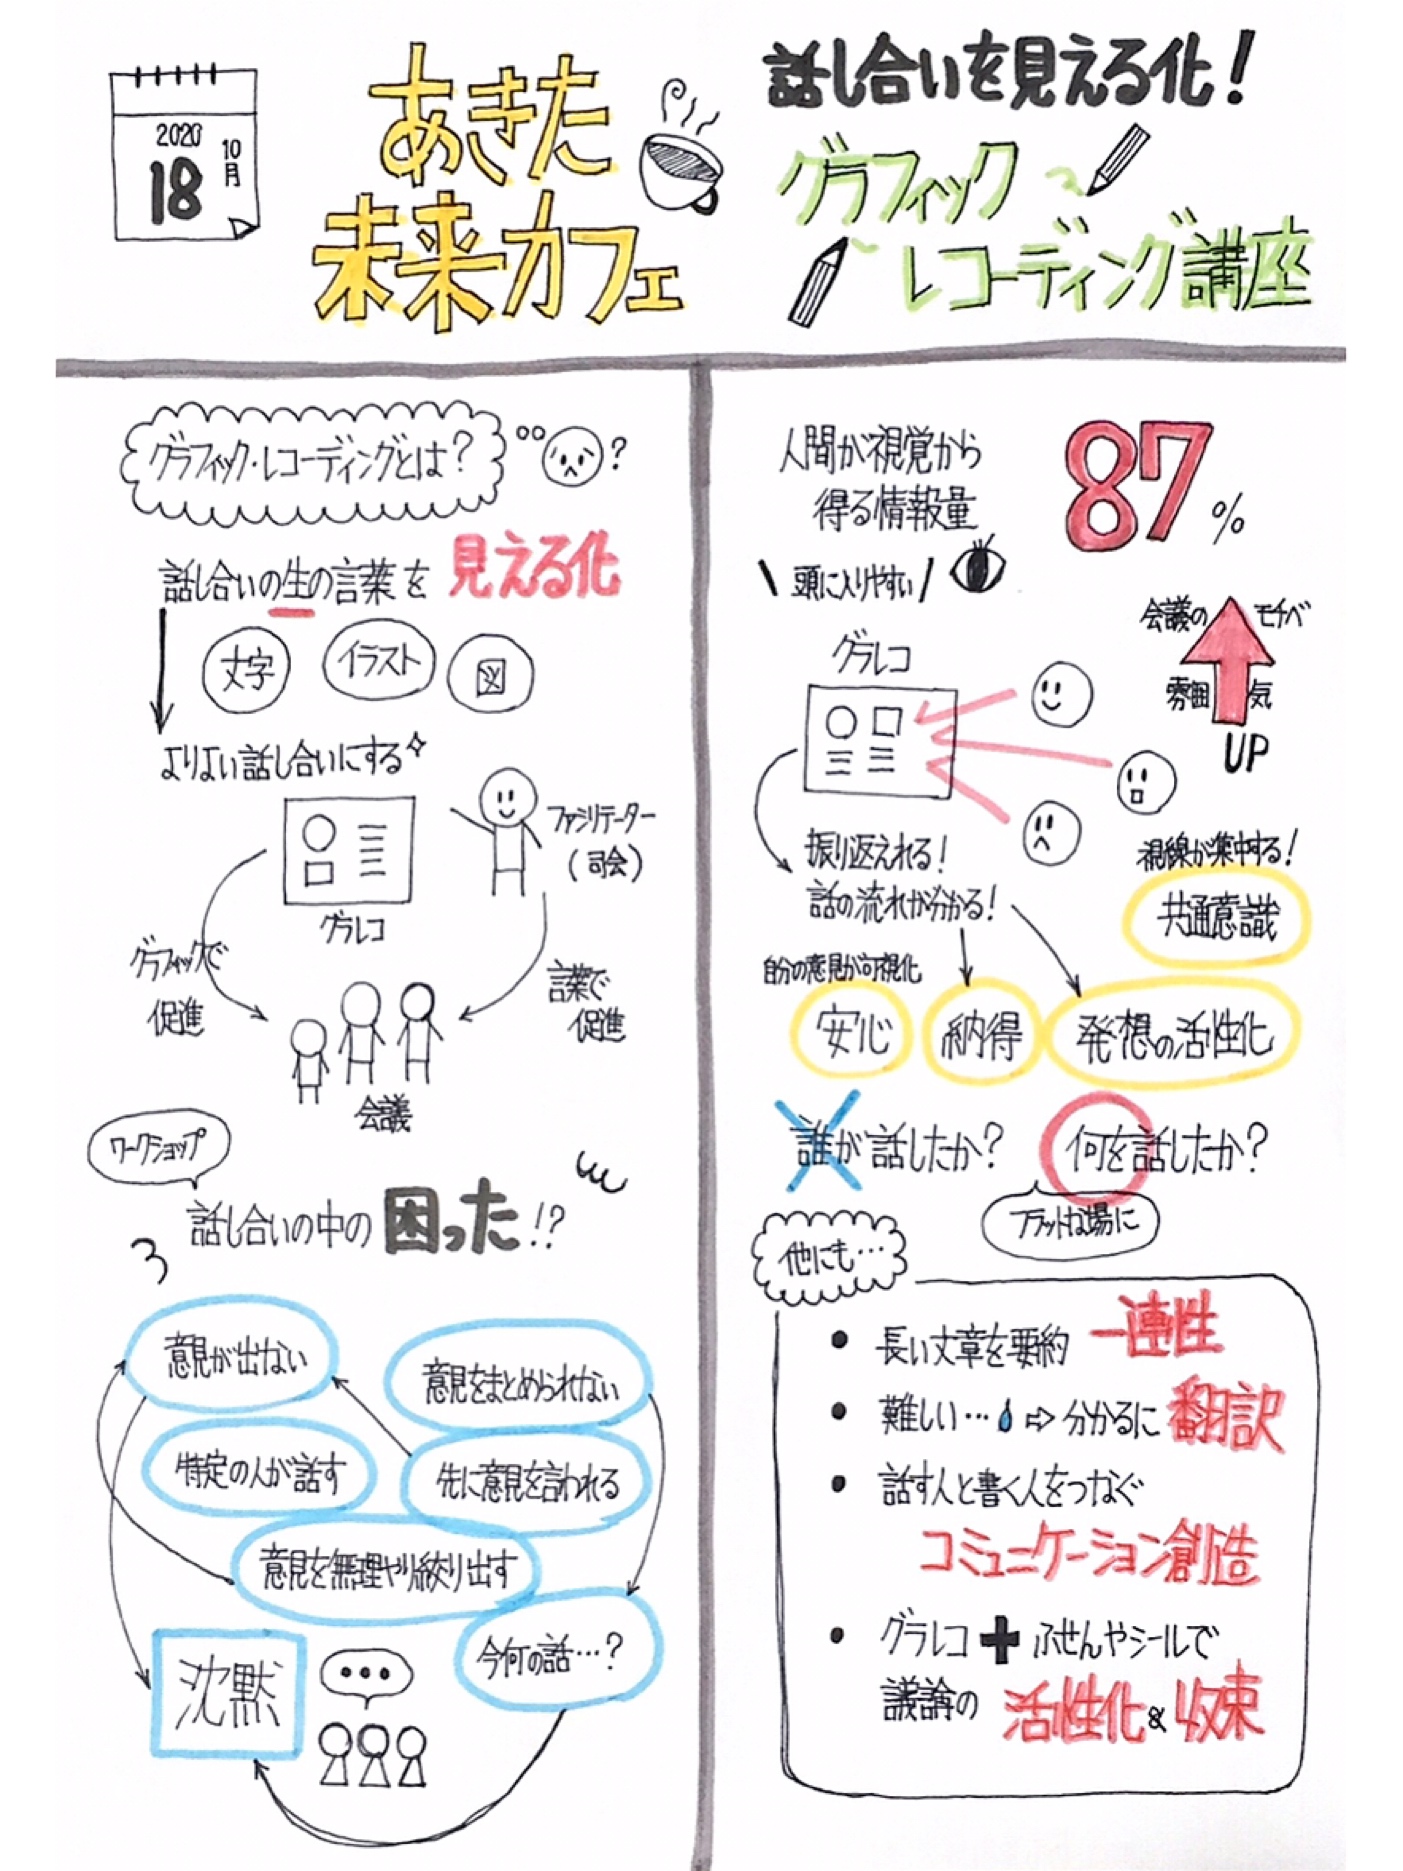 2020
10月
18
あきた
未来カフェ
話し合いを見える化!
グラフィック
レコーディング講座
グラフィック・レコーディングとは?
?
話し合いの生の言葉を 見える化
文字
イラスト
図
よりよい話し合いにする
ファシリテーター
(司会)
グラレコ
グラフィックで
促進
言葉で
促進
会議
ワークショップ
話し合いの中の 困った!?
意見が出ない
意見をまとめられない
特定の人が話す
先に意見を言われる
意見を無理やり絞り出す
今何の話…?
沈黙
人間が視覚から
得る情報量
87%
\ 頭に入りやすい /
グラレコ
会議の モチベ
雰囲気
UP
振り返えれる!
話の流れが分かる!
視線が集中する!
共通意識
自分の意見が可視化
安心
納得
発想の活性化
誰が話したか?
何を話したか?
フラットな場に
他にも…
• 長い文章を要約 一連性
• 難しい… ⇨ 分かるに 翻訳
• 話す人と書く人をつなぐ
コミュニケーション創造
• グラレコ + ふせんやシールで
議論の 活性化 & 収束